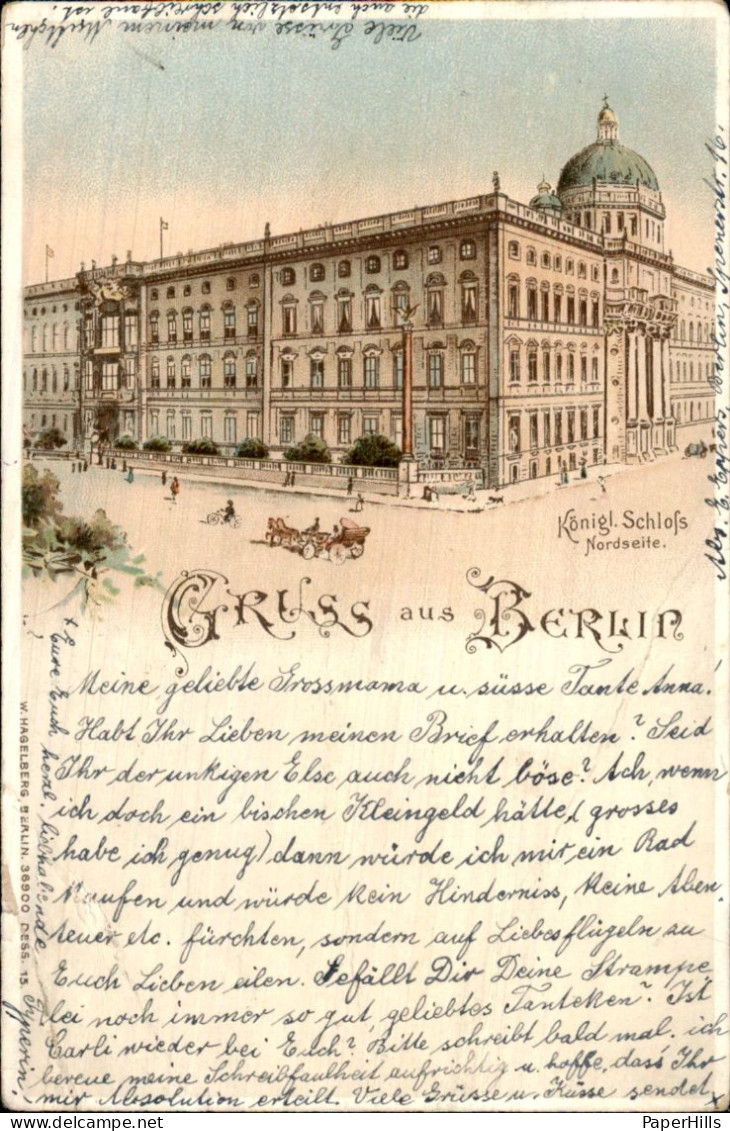 Viele Grüsse von meinem Muttchen
die auch entsetzlich schreibfaul ist!
Abs. E. Eypers, Berlin, Spenerstr. 16.
Königl. Schloſs
Nordseite.
GRUSS AUS BERLIN
Meine geliebte Grossmama u. süsse Tante Anna!
Habt Ihr Lieben meinen Brief erhalten? Seid
Ihr der unkigen Else auch nicht böse? Ach, wenn
ich doch ein bischen Kleingeld hätte, (grosses
habe ich genug) dann würde ich mir ein Rad
kaufen und würde kein Hinderniss, keine Aben-
teuer etc. fürchten, sondern auf Liebesflügeln zu
Euch Lieben eilen. Gefällt Dir Deine Strampe
lei noch immer so gut, geliebtes Tanteken? Ist
Carli wieder bei Euch? Bitte, schreibt bald mal. ich
bereue meine Schreibfaulheit aufrichtig u. hoffe, dass Ihr
mir Absolution erteilt. Viele Grüsse u. Küsse sendet x
x Eure Euch herzl. liebhabende
W. HAGELBERG, BERLIN. 36900 DESS. 15.
PaperHills